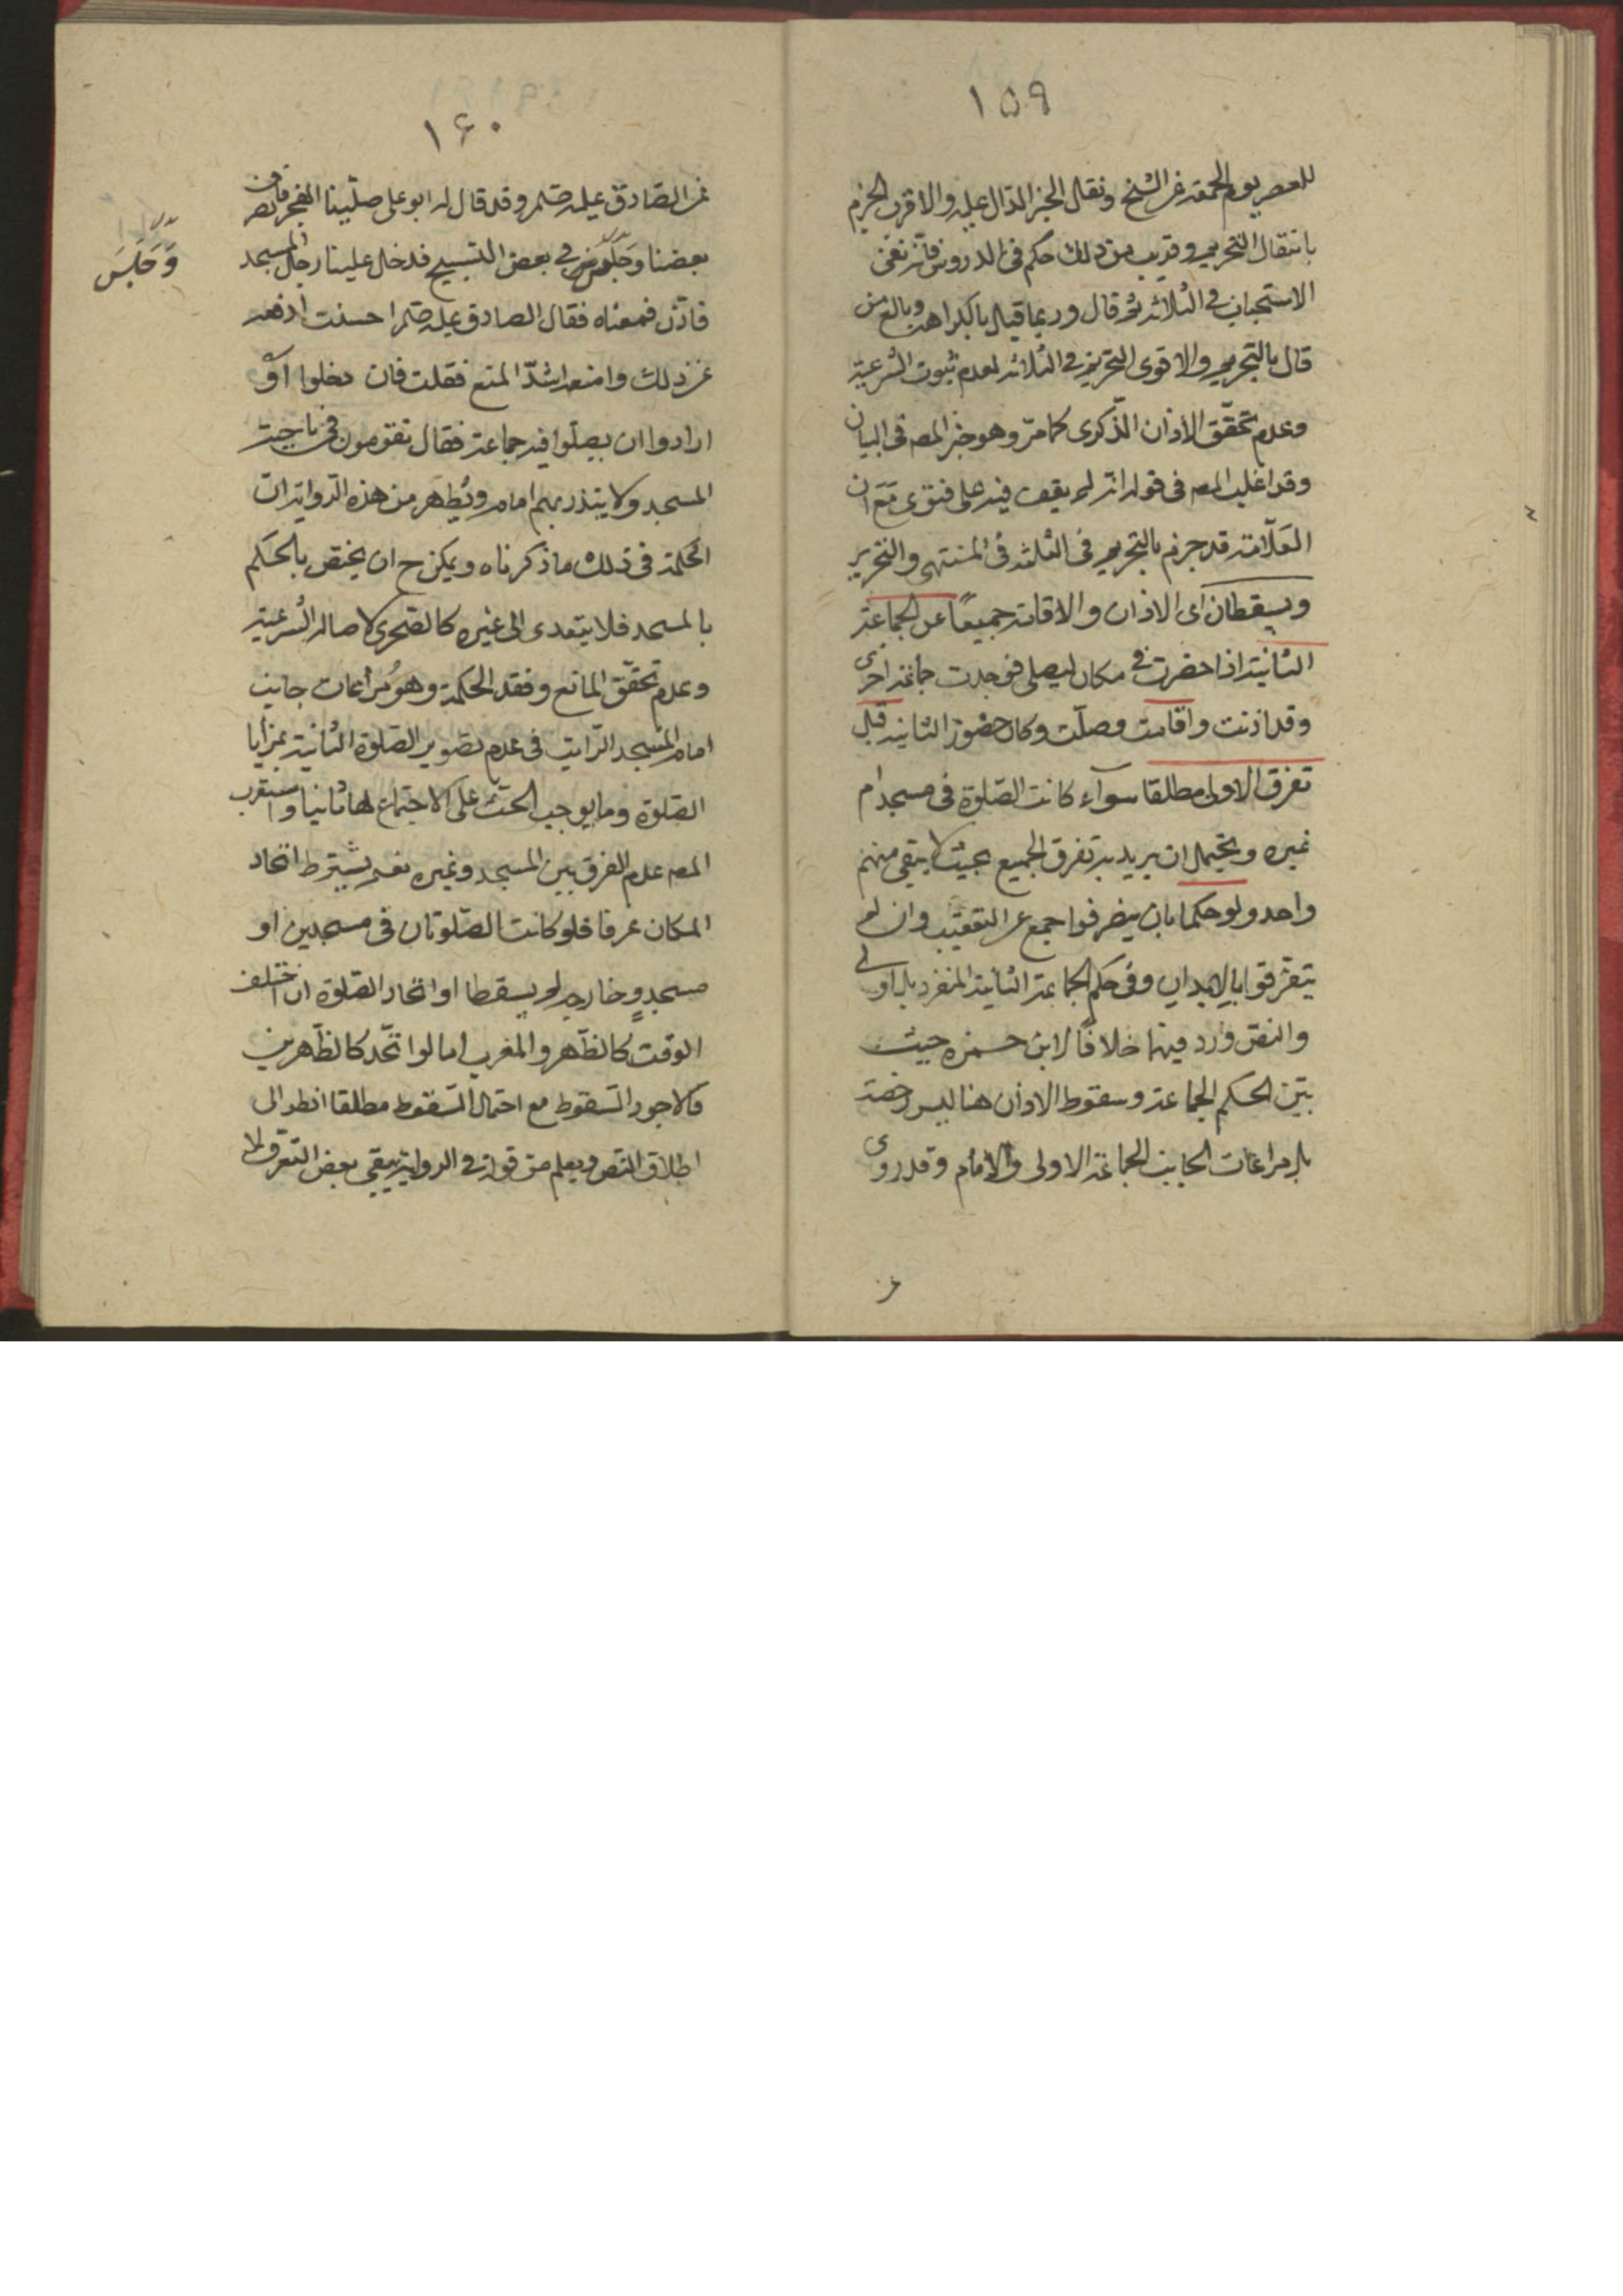 ١٥٩
للعصر يوم الجمعة عن الشيخ ونقل الخبر الدال عليه والاقرب الجزم
بانتقال التحريم وقريب من ذلك حكم فى الدروس فانه نفى
الاستحباب فى الثلاثة ثم قال وربما قيل بالكراهة وبالغ من
قال بالتحريم والاقوى التحريم فى الثلاثة لعدم ثبوت الشرعية
وعدم تحقق الاذان الذكرى كما مر وهو خبر المصه فى البيان
وقد اغلب المصه فى قوله انه لم يقف فيه على فتوى مع ان
العلامة قد جزم بالتحريم فى الثلثة فى المنتهى والتحرير
ويسقطان اى الاذان والاقامة جميعًا عن الجماعة
الثانية اذا حضرت فى مكان ليصلى فوجدت جماعة اخرى
وقد اذنت واقامت وصلت وكان حضور الثانية قبل
تفرق الاولى مطلقا سوآء كانت الصلوة فى مسجد ام
غيره ويحتمل ان يريد به تفرق الجميع بحيث لا يبقى منهم
واحد ولو حكما بان ينصرفوا جمع عن التعقيب وان لم
يتفرقوا بالابدان وفى حكم الجماعة الثانية المنفرد بل اولى
والنص ورد فيهما خلافًا لابن حمزه حيث
بتن الحكم الجماعة وسقوط الاذان هنا ليس رخصة
بل مراعات الجانب الجماعة الاولى والامام وقد روى
عن
١۶٠
عن الصادق عليه صلم وقد قال له ابو على صلينا الفجر فانصرف
بعضنا وجلوس فى بعض التسبيح فدخل علينا رجل المسجد
وَجَلَسَ
فاذن فمنعناه فقال الصادق عليه صلم احسنت ادفعه
عن ذلك وامنعه اشد المنع فقلت فان دخلوا او
ارادوا ان يصلوا فيه جماعة فقال تقومون فى ناحية
المسجد ولا يبدر بهم امام ويظهر من هذه الرواية ان
الحكمة فى ذلك ما ذكرناه ويمكن ح ان يختص بالحكم
بالمسجد فلا يتعدى الى غيره كالصحرى لاصالة الشرعية
وعدم تحقق المانع وفقد الحكمة وهو مراعات جانب
امام المسجد الراتب فى عدم تصوير الصلوة الثانية بمزايا
الصلوة وما يوجب الحث على الاجتماع لها ثانيا واستقرب
المصه عدم الفرق بين المسجد وغيره نعم يشترط اتحاد
المكان عرفا فلو كانت الصلوتان فى مسجدين او
مسجد وخارجه لم يسقطا او اتحاد الصلوة ان اختلف
الوقت كالظهر والمغرب اما لو اتحد كالظهرين
فالاجود السقوط مع احتمال السقوط مطلقا انظر الى
اطلاق النص ويعلم من قوله فى الرواية يبقى بعض التفرق لما